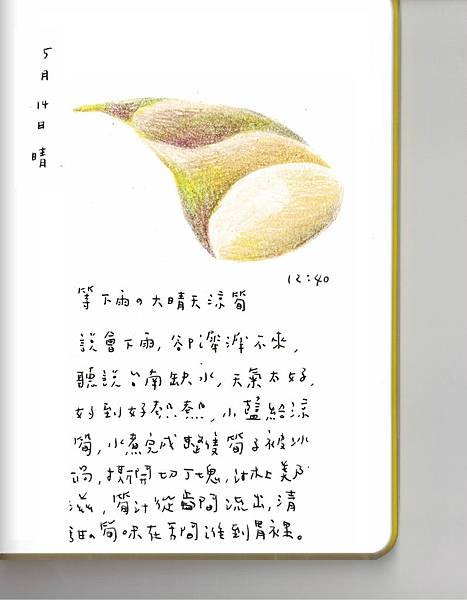 5月14日 晴
12:40
等下雨の大晴天涼筍
說會下雨,卻遲遲不來,
聽說台南缺水,天氣太好,
好到好熱熱,小鹽給涼
筍,水煮完成整隻筍子被冰
過,撥開切丁塊,汁
滋,筍汁從齒間流出,清
甜の筍味在牙間進到胃裡。